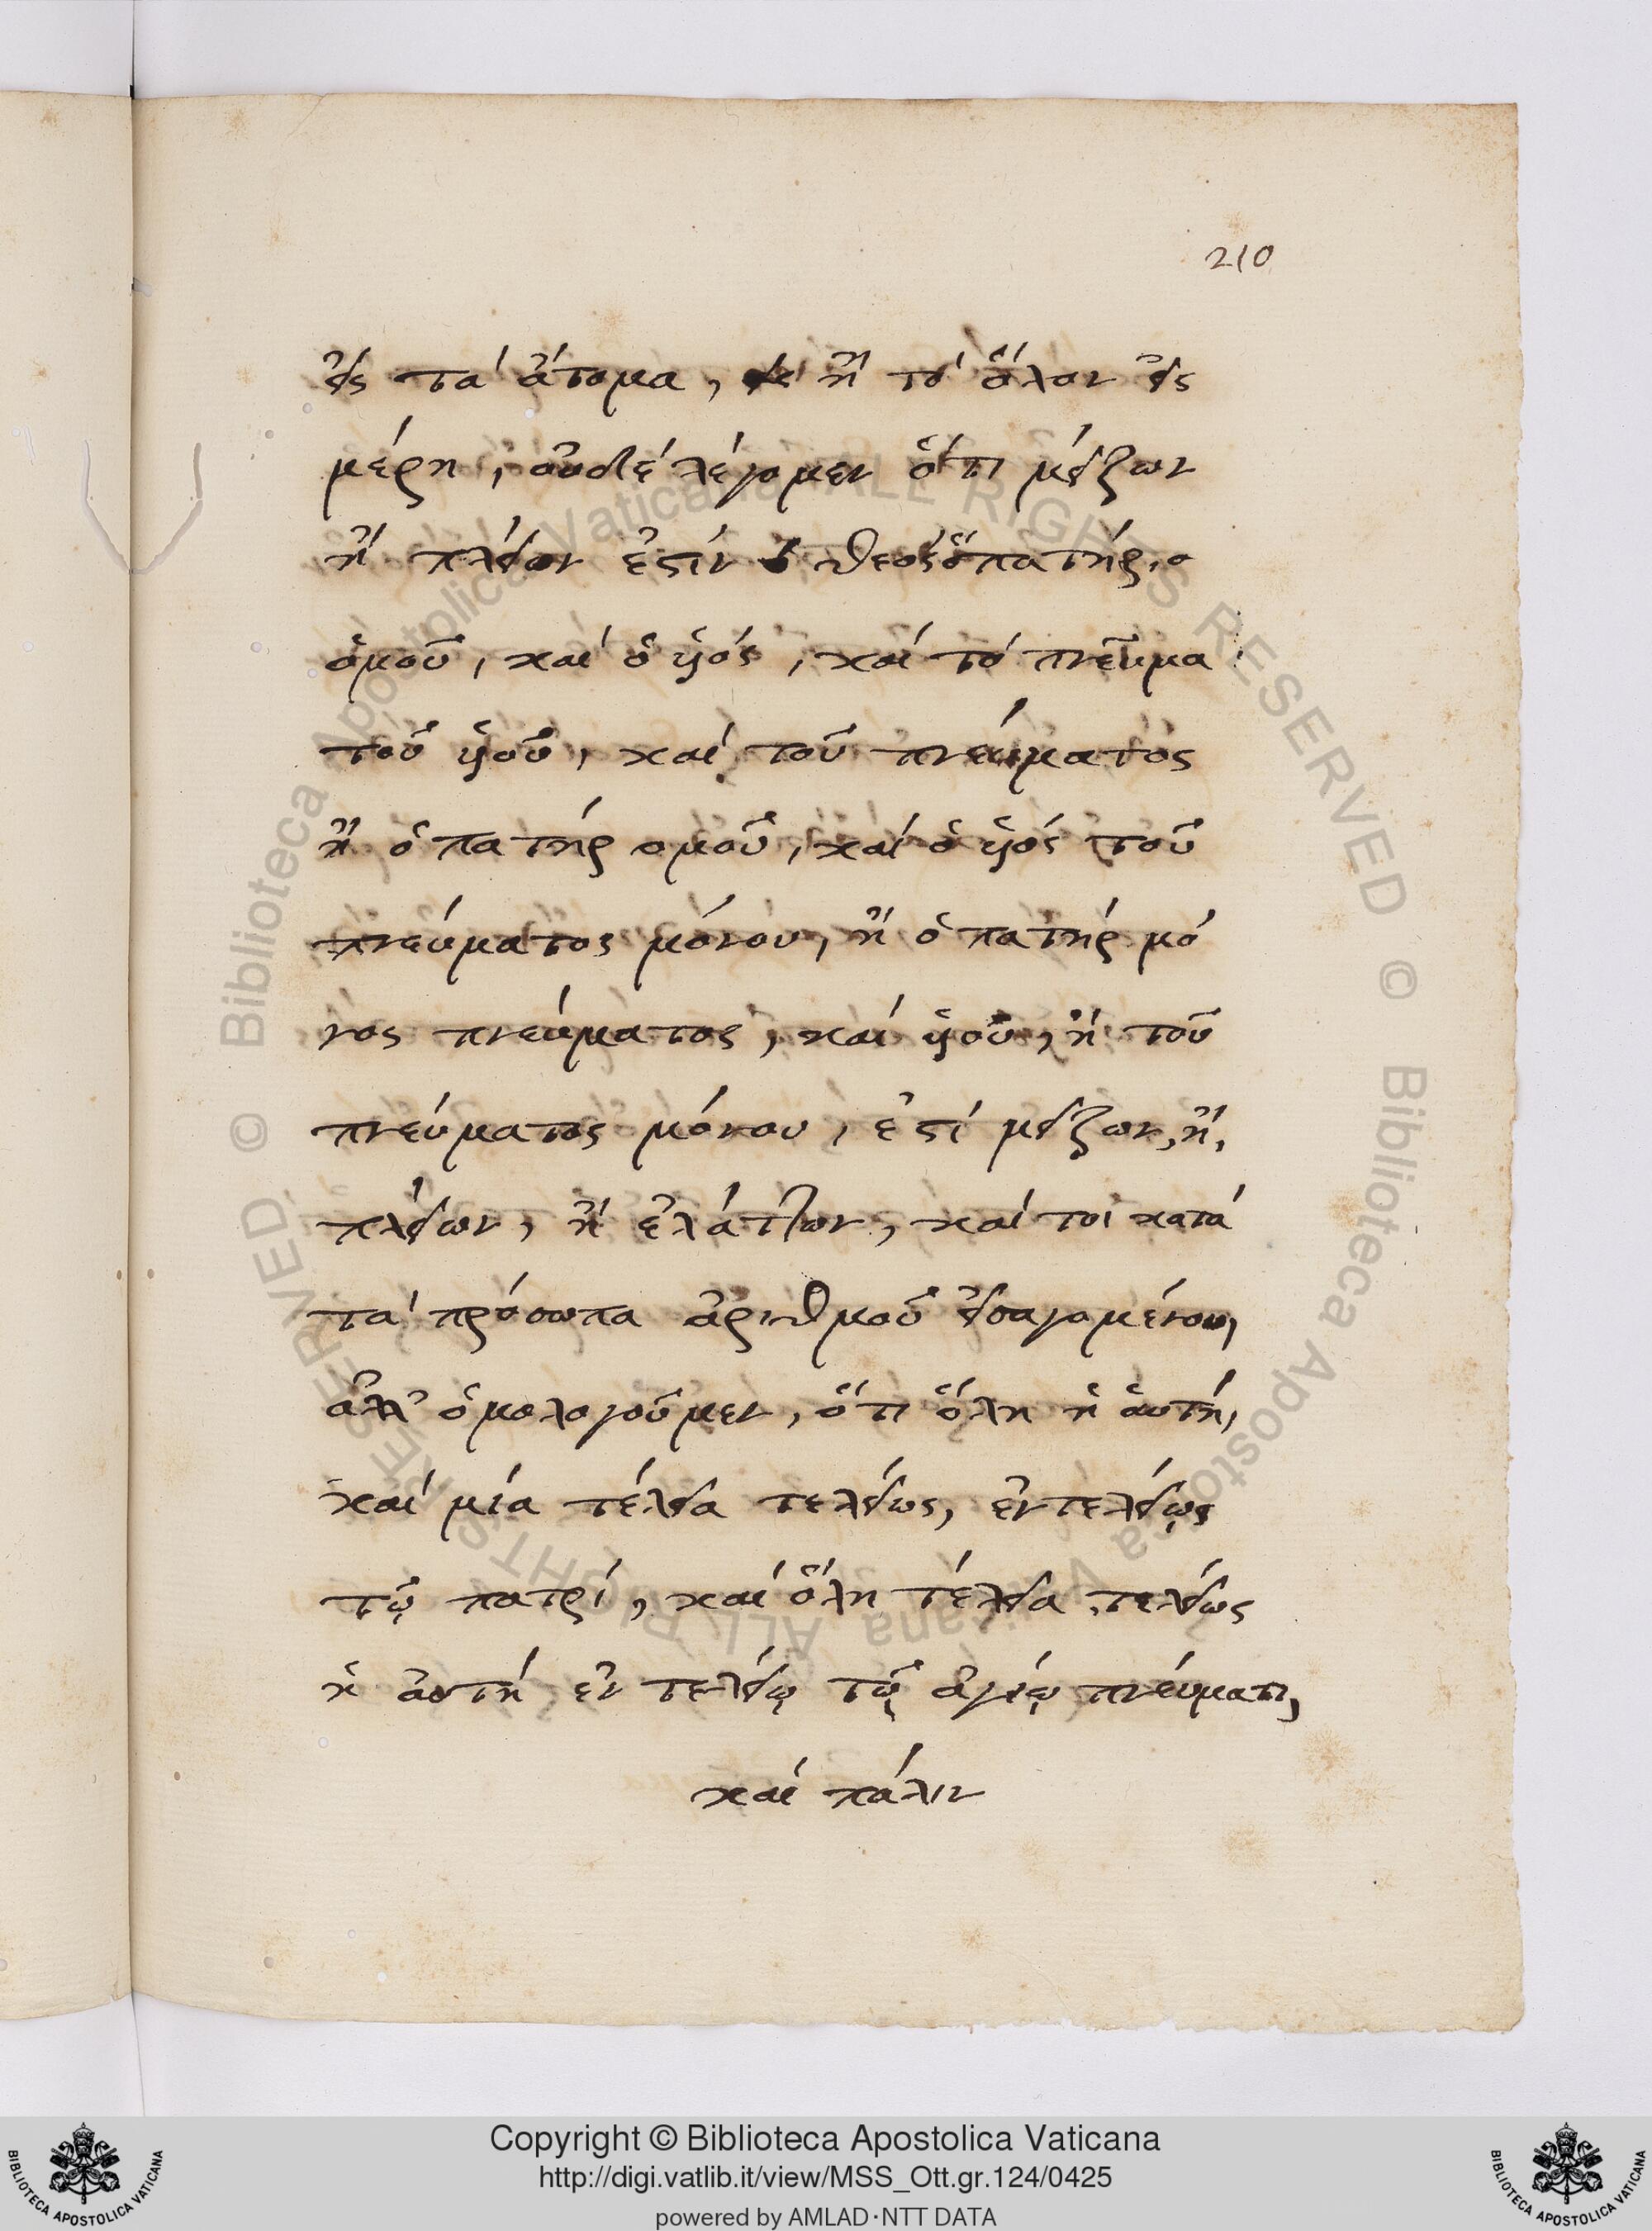 210
εἰς τὰ ἄτομα, ἢ τὸ ὅλον εἰς
μέρη, οὐδὲ λέγομεν ὅτι μείζων
ἢ πλείων ἐστὶν ὁ θεὸς ὁ πατήρ, ο
ὁμοῦ, καὶ ὁ ὑιός, καὶ τὸ πνεῦμα
τοῦ ὑιοῦ, καὶ τοῦ πνεύματος
ἢ ὁ πατήρ ομοῦ, καὶ ὁ ὑιός τοῦ
πνεύματος μόνου, ἢ ὁ πατήρ μό
νος πνεύματος, καὶ ὑιοῦ, ἢ τοῦ
πνεύματος μόνου, ἐστὶ μείζων, ἢ,
πλείων, ἢ ἐλάττων, καί τοι κατὰ
τὰ πρόσωπα ἀριθμοῦ εἰσαγομένου,
ἀλλ' ὁμολογοῦμεν, ὅτι ὅλη ἡ ἀυτή,
καὶ μία τέλεια τελείως, ἐν τελείῳς
τῷ πατρί, καὶ ὅλη τέλεια τελείως
ἡ ἀυτή ἐν τελείῳ τῷ ἁγίῳ πνεύματι,
καὶ πάλιν
Copyright © Biblioteca Apostolica Vaticana
http://digi.vatlib.it/view/MSS_Ott.gr.124/0425
powered by AMLAD·NTT DATA